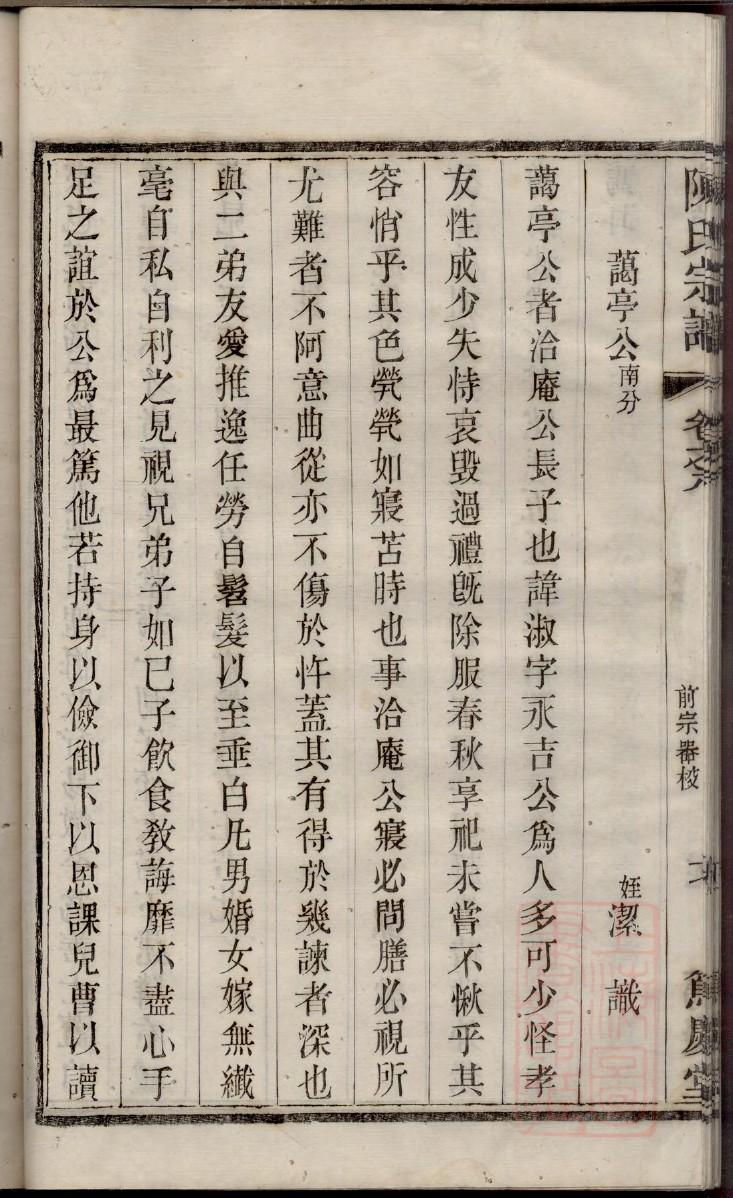 陳氏宗譜 卷之六 前宗器校 篤慶堂
藹亭公南分 姪潔識
藹亭公者洽庵公長子也諱淑字永吉公爲人多可少怪孝
友性成少失恃哀毀過禮旣除服春秋享祀未嘗不愀乎其
容悄乎其色煢煢如寢苫時也事洽庵公寢必問膳必視所
尤難者不阿意曲從亦不傷於忤蓋其有得於幾諫者深也
與二弟友愛推逸任勞自髫髮以至垂白凡男婚女嫁無纖
毫自私自利之見視兄弟子如已子飲食敎誨靡不盡心手
足之誼於公爲最篤他若持身以儉御下以恩課兒曹以讀